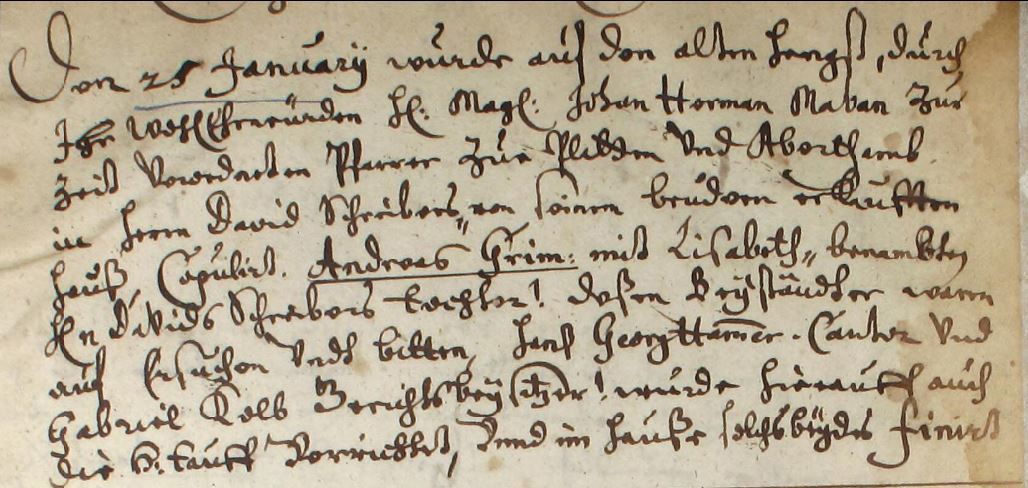 Den 25 Januarij wurde auf den alten hengst, durch
Ihr WohlEhrwürden H: Mag: Johan Herman Maban Zur
Zeit Verordneten Pfarrer Zur und
in Herrn David Schreibers, von seinen brüdern erkaufften
hauß, Copulirt. Andreas Grim: mit Lisabeth, benambten
Hn Davids Schreibers tochter! deßen Beyständer waren
auf Ersuchen undt bitten, Hans Georg Hamer. Cantor und
Gabriel Kolb Gerichtsbeysitzer! wurde hierauff auch
die H. tauff Verrichtet, Unnd im hauße selbs finirt